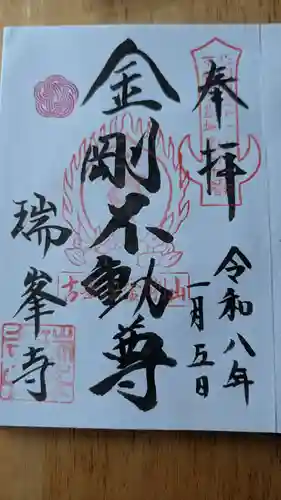 奉拝
令和八年
一月五日
金剛不動尊
瑞峯寺